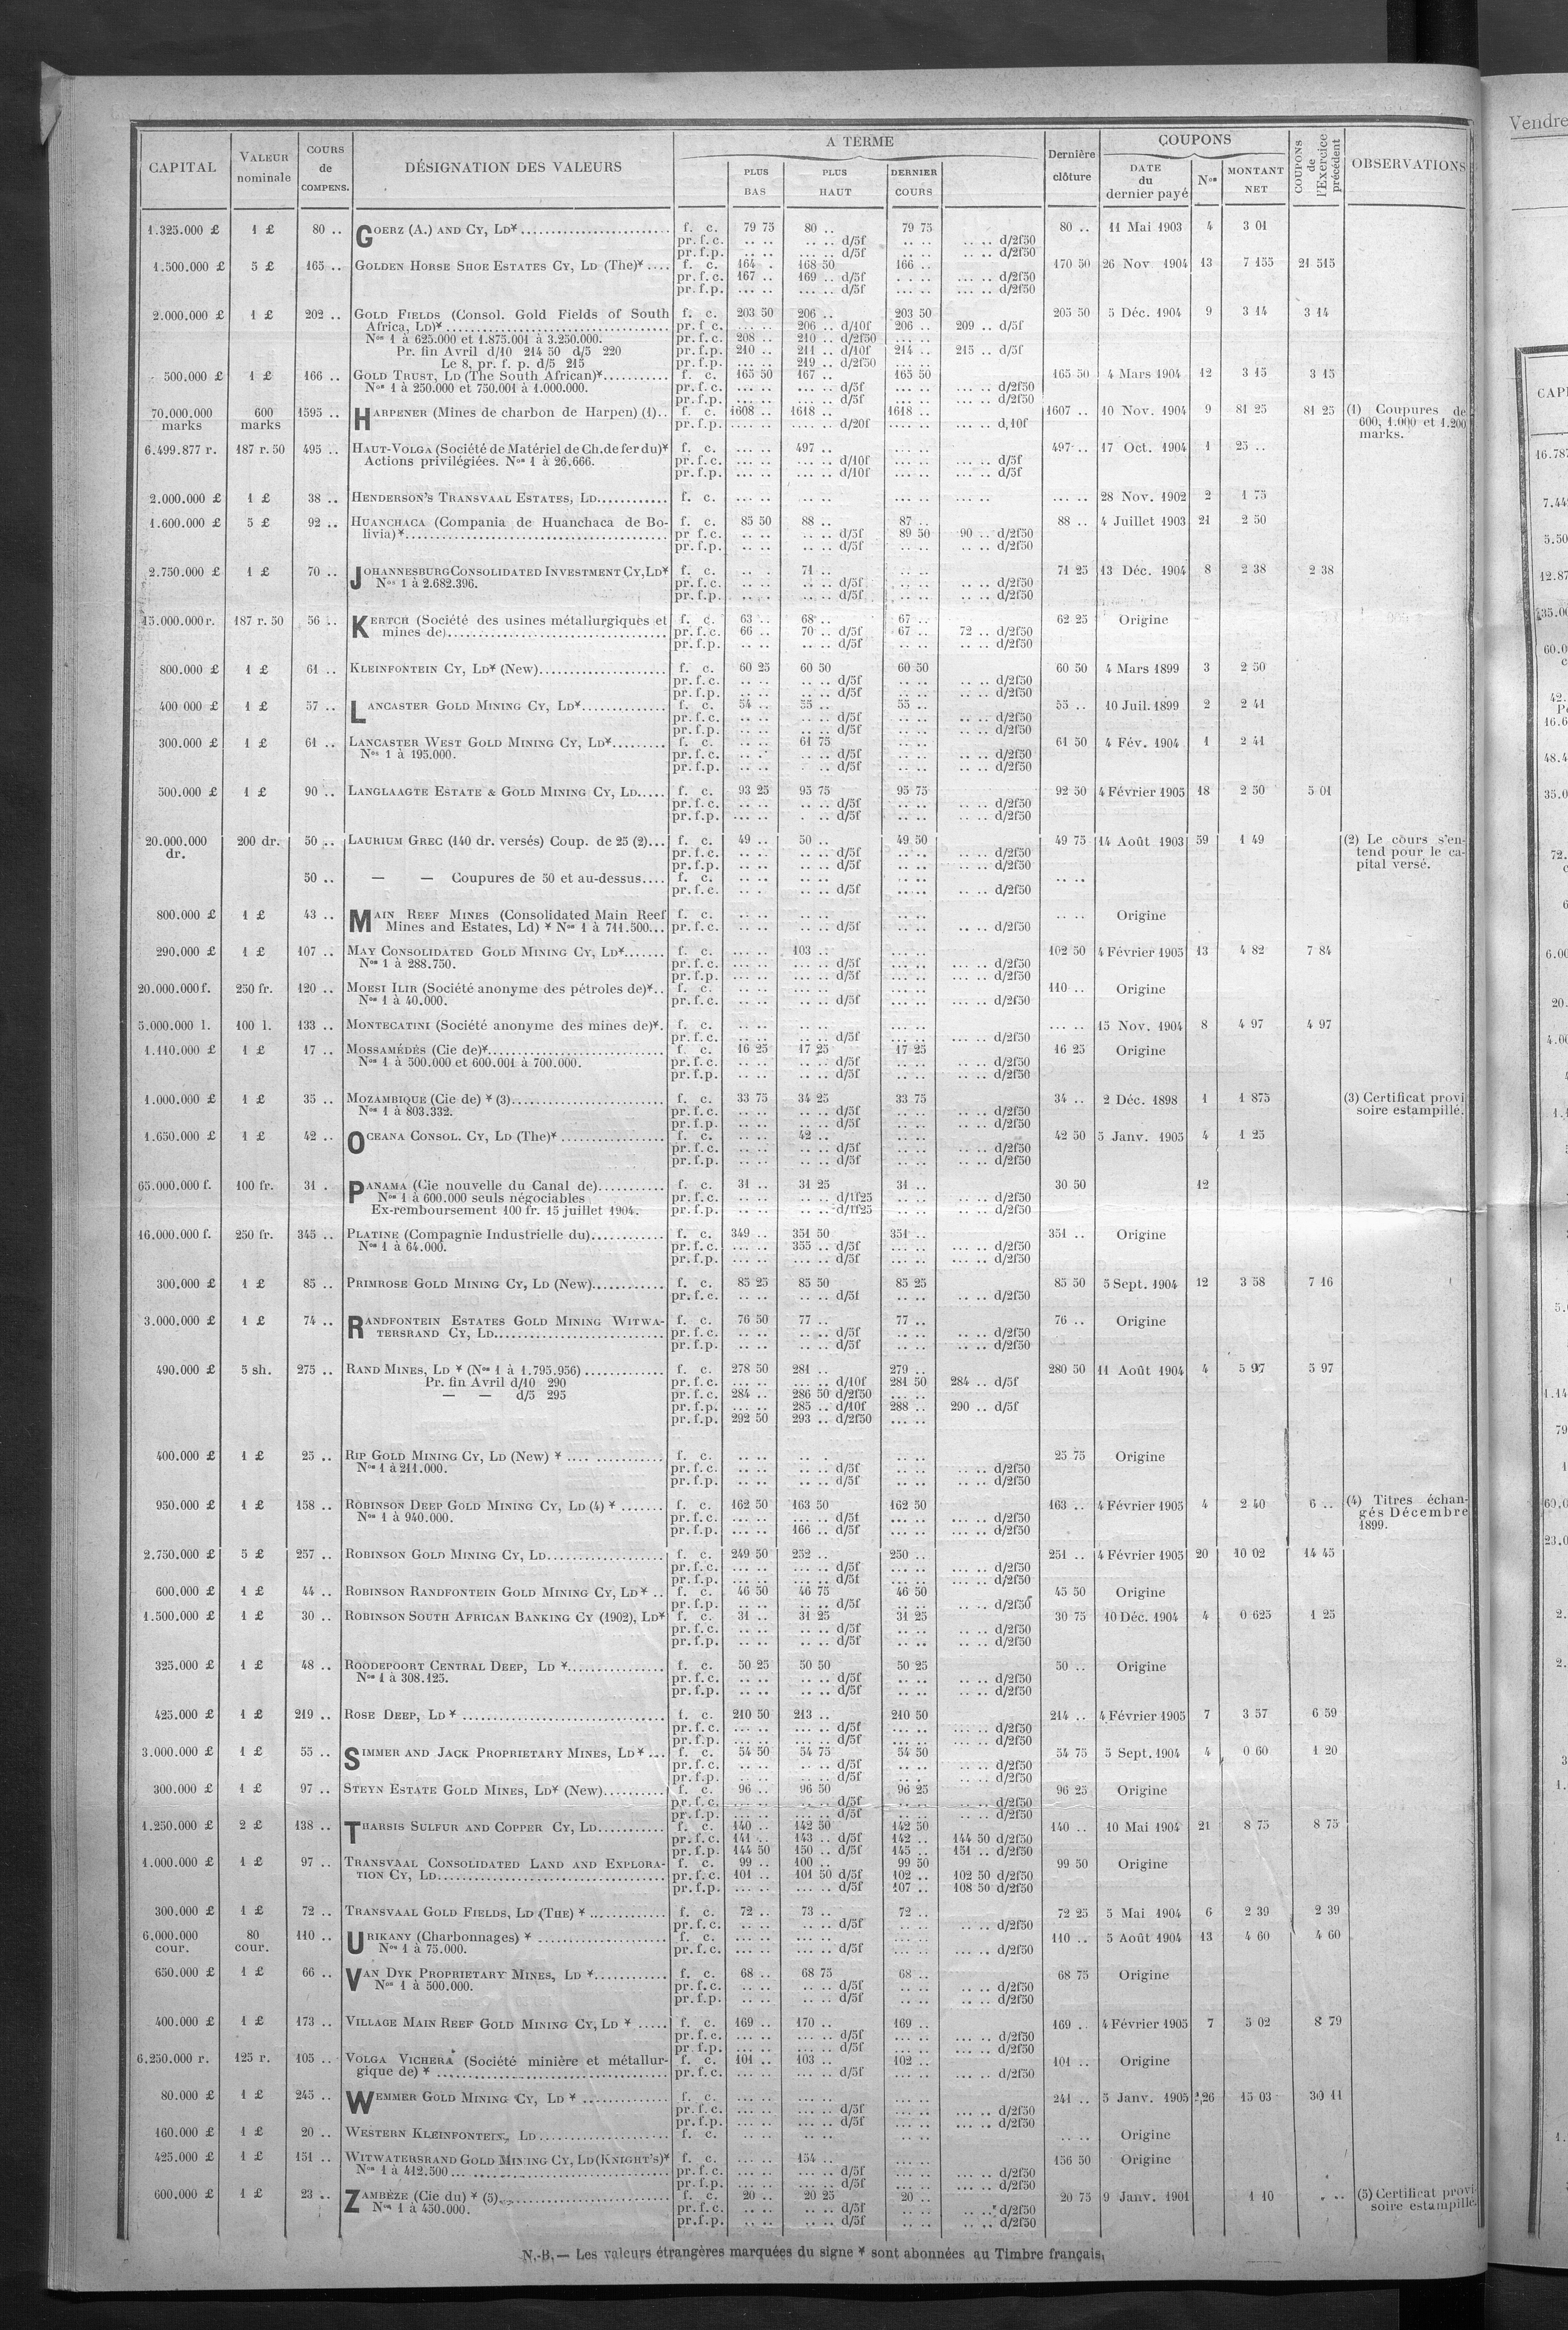 CAPITAL VALEUR nominale COURS de COMPENS. DÉSIGNATION DES VALEURS A TERME PLUS BAS PLUS HAUT DERNIER COURS Dernière clôture COUPONS DATE du dernier payé Nos MONTANT NET COUPONS de l'Exercice précédent OBSERVATIONS
1.325.000 £ 1 £ 80 .. GOERZ (A.) AND CY, LD* f. c. 79 75 80 .. 79 75 80 .. 11 Mai 1903 4 3 01
pr. f. c. .. .. .. .. d/5f .. .. .. .. d/2f50
pr. f. p. .. .. .. .. d/5f .. .. .. .. d/2f50
1.500.000 £ 5 £ 165 .. GOLDEN HORSE SHOE ESTATES CY, LD (The)* f. c. 164 . 168 50 166 .. 170 50 26 Nov 1904 13 7 155 21 515
pr. f. c. 167 .. 169 .. d/5f ... .. ... .. d/2f50
pr. f. p. ... .. ... .. d/5f ... .. ... .. d/2f50
2.000.000 £ 1 £ 202 .. GOLD FIELDS (Consol. Gold Fields of South f. c. 203 50 206 .. 203 50 205 50 5 Déc. 1904 9 3 14 3 14
Africa, LD)* pr. f. c. ... .. 206 .. d/10f 206 .. 209 .. d/5f
Nos 1 à 625.000 et 1.875.001 à 3.250.000. pr. f. c. 208 .. 210 .. d/2f50 ... ..
Pr. fin Avril d/10 214 50 d/5 220 pr. f. p. 210 .. 211 .. d/10f 214 .. 215 .. d/5f
Le 8, pr. f. p. d/5 215 pr. f. p. ... .. 219 .. d/2f50 ... ..
500.000 £ 1 £ 166 .. GOLD TRUST, LD (The South African)* f. c. 165 50 167 .. 165 50 165 50 4 Mars 1904 12 3 15 3 15
Nos 1 à 250.000 et 750.001 à 1.000.000. pr. f. c. ... .. ... .. d/5f ... .. ... .. d/2f50
pr. f. p. ... .. ... .. d/5f ... .. ... .. d/2f50
70.000.000 marks 600 marks 1595 .. HARPENER (Mines de charbon de Harpen) (1).. f. c. 1608 .. 1618 .. 1618 .. 1607 .. 10 Nov. 1904 9 81 25 81 25 (1) Coupures de 600, 1.000 et 1.200 marks.
pr. f. p. .... .. .... .. d/20f .... .. ... .. d,10f
6.499.877 r. 187 r. 50 495 .. HAUT-VOLGA (Société de Matériel de Ch. de fer du)* f. c. ... .. 497 .. ... .. 497 .. 17 Oct. 1904 1 25 ..
Actions privilégiées. Nos 1 à 26.666. pr. f. c. ... .. ... .. d/10f ... .. ... .. d/5f
pr. f. p. ... .. ... .. d/10f ... .. ... .. d/5f
2.000.000 £ 1 £ 38 .. HENDERSON'S TRANSVAAL ESTATES, LD f. c. ... .. .. .. ... .. ... .. ... .. 28 Nov. 1902 2 1 75
1.600.000 £ 5 £ 92 .. HUANCHACA (Compania de Huanchaca de Bo- f. c. 85 50 88 .. 87 .. 88 .. 4 Juillet 1903 21 2 50
livia)* pr f. c. .. .. .. .. d/5f 89 50 90 .. d/2f50
pr. f. p. .. .. .. .. d/5f .. .. .. .. d/2f50
2.750.000 £ 1 £ 70 .. JOHANNESBURG CONSOLIDATED INVESTMENT CY, LD* f. c. .. . 71 .. .. .. 71 25 13 Déc. 1904 8 2 38 2 38
Nos 1 à 2.682.396. pr. f. c. .. .. .. .. d/5f .. .. .. .. d/2f50
pr. f. p. .. .. .. .. d/5f .. .. .. .. d/2f50
15.000.000 r. 187 r. 50 56 .. KERTCH (Société des usines métallurgiques et f. c. 63 .. 68 .. 67 .. 62 25 Origine
mines de) pr. f. c. 66 .. 70 .. d/5f 67 .. 72 .. d/2f50
pr. f. p. .. .. .. .. d/5f .. .. .. .. d/2f50
800.000 £ 1 £ 61 .. KLEINFONTEIN CY, LD* (New) f. c. 60 25 60 50 60 50 60 50 4 Mars 1899 3 2 50
pr. f. c. .. .. .. .. d/5f .. .. .. .. d/2f50
pr. f. p. .. .. .. .. d/5f .. .. .. .. d/2f50
400 000 £ 1 £ 57 .. LANCASTER GOLD MINING CY, LD* f. c. 54 .. 55 .. 55 .. 55 .. 10 Juil. 1899 2 2 41
pr. f. c. .. .. .. .. d/5f .. .. .. .. d/2f50
pr. f. p. .. .. .. .. d/5f .. .. .. .. d/2f50
300.000 £ 1 £ 61 .. LANCASTER WEST GOLD MINING CY, LD* f. c. .. .. 61 75 .. .. 61 50 4 Fév. 1904 1 2 41
Nos 1 à 195.000. pr. f. c. .. .. .. .. d/5f .. .. .. .. d/2f50
pr. f. p. .. .. .. .. d/5f .. .. .. .. d/2f50
500.000 £ 1 £ 90 .. LANGLAAGTE ESTATE & GOLD MINING CY, LD f. c. 93 25 95 75 95 75 92 50 4 Février 1905 18 2 50 5 01
pr. f. c. .. .. .. .. d/5f .. .. .. .. d/2f50
pr. f. p. ... .. . .. d/5f .. .. .. .. d/2f50
20.000.000 dr. 200 dr. 50 .. LAURIUM GREC (140 dr. versés) Coup. de 25 (2) f. c. 49 .. 50 .. 49 50 49 75 14 Août 1903 59 1 49 (2) Le cours s'entend pour le capital versé.
pr. f. c. .. .. .. .. d/5f .. .. .. .. d/2f50
pr. f. p. .. .. .. .. d/5f .. .. .. .. d/2f50
50 .. — — Coupures de 50 et au-dessus f. c. .. .. .. .. .. .. .. ..
pr. f. c. .. .. .. .. d/5f .. .. .. .. d/2f50
800.000 £ 1 £ 43 .. MAIN REEF MINES (Consolidated Main Reef f. c. .. .. .. .. .. .. .. .. Origine
Mines and Estates, Ld) * Nos 1 à 711.500 pr. f. c. .. .. .. .. d/5f .. .. .. .. d/2f50
290.000 £ 1 £ 107 .. MAY CONSOLIDATED GOLD MINING CY, LD* f. c. ... .. 103 .. ... .. 102 50 4 Février 1905 13 4 82 7 84
Nos 1 à 288.750. pr. f. c. ... .. ... .. d/5f ... .. ... .. d/2f50
pr. f. p. ... .. ... .. d/5f ... .. ... .. d/2f50
20.000.000 f. 250 fr. 120 .. MOESI ILIR (Société anonyme des pétroles de)* f. c. .. .. ... .. ... .. 110 .. Origine
Nos 1 à 40.000. pr. f. c. .. .. .. .. d/5f ... .. ... .. d/2f50
5.000.000 l. 100 l. 133 .. MONTECATINI (Société anonyme des mines de)*. f. c. .. .. ... .. ... .. ... .. 15 Nov. 1904 8 4 97 4 97
pr. f. c. .. .. .. .. d/5f ... .. ... .. d/2f50
1.110.000 £ 1 £ 17 .. MOSSAMÉDÈS (Cie de)* f. c. 16 25 17 25 17 25 16 25 Origine
Nos 1 à 500.000 et 600.001 à 700.000. pr. f. c. .. .. .. .. d/5f .. .. .. .. d/2f50
pr. f. p. .. .. .. .. d/5f .. .. .. .. d/2f50
1.000.000 £ 1 £ 35 .. MOZAMBIQUE (Cie de) * (3) f. c. 33 75 34 25 33 75 34 .. 2 Déc. 1898 1 1 875 (3) Certificat provisoire estampillé.
Nos 1 à 803.332. pr. f. c. .. .. .. .. d/5f .. .. .. .. d/2f50
pr. f. p. .. .. .. .. d/5f .. .. .. .. d/2f50
1.650.000 £ 1 £ 42 .. OCEANA CONSOL. CY, LD (The)* f. c. .. .. 42 .. .. .. 42 50 5 Janv. 1905 4 1 25
pr. f. c. .. .. .. .. d/5f .. .. .. .. d/2f50
pr. f. p. .. .. .. .. d/5f .. .. .. .. d/2f50
65.000.000 f. 100 fr. 31 . PANAMA (Cie nouvelle du Canal de) f. c. 31 .. 31 25 31 .. 30 50 12
Nos 1 à 600.000 seuls négociables pr. f. c. .. .. .. .. d/1f25 .. .. .. .. d/2f50
Ex-remboursement 100 fr. 15 juillet 1904. pr. f. p. .. .. .. .. d/1f25 .. .. .. .. d/2f50
16.000.000 f. 250 fr. 345 .. PLATINE (Compagnie Industrielle du) f. c. 349 .. 351 50 351 .. 351 .. Origine
Nos 1 à 64.000. pr. f. c. ... .. 355 .. d/5f ... .. ... .. d/2f50
pr. f. p. ... .. ... .. d/5f ... .. ... .. d/2f50
300.000 £ 1 £ 85 .. PRIMROSE GOLD MINING CY, LD (New) f. c. 85 25 85 50 85 25 85 50 5 Sept. 1904 12 3 58 7 16
pr. f. c. .. .. .. .. d/5f .. .. .. .. d/2f50
3.000.000 £ 1 £ 74 .. RANDFONTEIN ESTATES GOLD MINING WITWA- f. c. 76 50 77 .. 77 .. 76 .. Origine
TERSRAND CY, LD pr. f. c. .. .. .. .. d/5f .. .. .. .. d/2f50
pr. f. p. .. .. .. .. d/5f .. .. .. .. d/2f50
490.000 £ 5 sh. 275 .. RAND MINES, LD * (Nos 1 à 1.795.956) f. c. 278 50 281 .. 279 .. 280 50 11 Août 1904 4 5 97 5 97
Pr. fin Avril d/10 290 pr. f. c. ... .. ... .. d/10f 281 50 284 .. d/5f
— — d/5 295 pr. f. c. 284 .. 286 50 d/2f50 ... ..
pr. f. p. ... .. 285 .. d/10f 288 .. 290 .. d/5f
pr. f. p. 292 50 293 .. d/2f50 ... ..
400.000 £ 1 £ 25 .. RIP GOLD MINING CY, LD (New) * f. c. .. .. .. . .. .. 25 75 Origine
Nos 1 à 211.000. pr. f. c. .. .. .. .. d/5f .. .. .. .. d/2f50
pr. f. p. .. .. .. .. d/5f .. .. .. .. d/2f50
950.000 £ 1 £ 158 .. ROBINSON DEEP GOLD MINING CY, LD (4) * f. c. 162 50 163 50 162 50 163 .. 4 Février 1905 4 2 40 6 .. (4) Titres échangés Décembre 1899.
Nos 1 à 940.000. pr. f. c. ... .. ... .. d/5f ... .. ... .. d/2f50
pr. f. p. ... .. 166 .. d/5f ... .. ... .. d/2f50
2.750.000 £ 5 £ 257 .. ROBINSON GOLD MINING CY, LD f. c. 249 50 252 .. 250 .. 251 .. 4 Février 1905 20 10 02 14 45
pr. f. c. ... .. ... .. d/5f ... .. ... .. d/2f50
pr. f. p. ... .. ... .. d/5f ... .. ... .. d/2f50
600.000 £ 1 £ 44 .. ROBINSON RANDFONTEIN GOLD MINING CY, LD* f. c. 46 50 46 75 46 50 45 50 Origine
pr. f. p. .. .. .. .. d/5f .. .. .. .. d/2f50
1.500.000 £ 1 £ 30 .. ROBINSON SOUTH AFRICAN BANKING CY (1902), LD* f. c. 31 .. 31 25 31 25 30 75 10 Déc. 1904 4 0 625 1 25
pr. f. c. .. .. .. .. d/5f .. .. .. .. d/2f50
pr. f. p. .. .. .. .. d/5f .. .. .. .. d/2f50
325.000 £ 1 £ 48 .. ROODEPOORT CENTRAL DEEP, LD * f. c. 50 25 50 50 50 25 50 .. Origine
Nos 1 à 308.125. pr. f. c. .. .. .. .. d/5f .. .. .. .. d/2f50
pr. f. p. .. .. .. .. d/5f .. .. .. .. d/2f50
425.000 £ 1 £ 219 .. ROSE DEEP, LD * f. c. 210 50 213 .. 210 50 214 .. 4 Février 1905 7 3 57 6 59
pr. f. c. ... .. ... .. d/5f ... .. ... .. d/2f50
pr. f. p. ... .. ... .. d/5f ... .. ... .. d/2f50
3.000.000 £ 1 £ 55 .. SIMMER AND JACK PROPRIETARY MINES, LD* f. c. 54 50 54 75 54 50 54 75 5 Sept. 1904 4 0 60 1 20
pr. f. c. .. .. .. .. d/5f .. .. .. .. d/2f50
pr. f. p. .. .. .. .. d/5f .. .. .. .. d/2f50
300.000 £ 1 £ 97 .. STEYN ESTATE GOLD MINES, LD* (New) f. c. 96 .. 96 50 96 25 96 25 Origine
pr. f. c. ... .. ... .. d/5f .. .. .. .. d/2f50
pr. f. p. ... .. ... .. d/5f .. .. .. .. d/2f50
1.250.000 £ 2 £ 138 .. THARSIS SULFUR AND COPPER CY, LD f. c. 140 .. 142 50 142 50 140 .. 10 Mai 1904 21 8 75 8 75
pr. f. c. 141 .. 143 .. d/5f 142 .. 144 50 d/2f50
pr. f. p. 144 50 150 .. d/5f 145 .. 151 .. d/2f50
1.000.000 £ 1 £ 97 .. TRANSVAAL CONSOLIDATED LAND AND EXPLORA- f. c. 99 .. 100 .. 99 50 99 50 Origine
TION CY, LD pr. f. c. 101 .. 101 50 d/5f 102 .. 102 50 d/2f50
pr. f. p. ... .. ... .. d/5f 107 .. 108 50 d/2f50
300.000 £ 1 £ 72 .. TRANSVAAL GOLD FIELDS, LD (THE) * f. c. 72 .. 73 .. 72 .. 72 25 5 Mai 1904 6 2 39 2 39
pr. f. c. .. .. .. .. d/5f .. .. .. .. d/2f50
6.000.000 cour. 80 cour. 110 .. URIKANY (Charbonnages) * f. c. ... .. ... .. ... .. 110 .. 5 Août 1904 13 4 60 4 60
Nos 1 à 75.000. pr. f. c. ... .. ... .. d/5f ... .. ... .. d/2f50
650.000 £ 1 £ 66 .. VAN DYK PROPRIETARY MINES, LD * f. c. 68 .. 68 75 68 .. 68 75 Origine
Nos 1 à 500.000. pr. f. c. .. .. .. .. d/5f .. .. .. .. d/2f50
pr. f. p. .. .. .. .. d/5f .. .. .. .. d/2f50
400.000 £ 1 £ 173 .. VILLAGE MAIN REEF GOLD MINING CY, LD * f. c. 169 .. 170 .. 169 .. 169 .. 4 Février 1905 7 5 02 8 79
pr. f. c. ... .. ... .. d/5f ... .. ... .. d/2f50
pr. f. p. ... .. ... .. d/5f ... .. ... .. d/2f50
6.250.000 r. 125 r. 105 .. VOLGA VICHERA (Société minière et métallur- f. c. 101 .. 103 .. 102 .. 101 .. Origine
gique de) * pr. f. c. ... .. ... .. d/5f ... .. ... .. d/2f50
80.000 £ 1 £ 245 .. WEMMER GOLD MINING CY, LD * f. c. ... .. ... .. ... .. 241 .. 5 Janv. 1905 26 15 03 30 11
pr. f. c. ... .. ... .. d/5f ... .. ... .. d/2f50
pr. f. p. ... .. ... .. d/5f ... .. ... .. d/2f50
160.000 £ 1 £ 20 .. WESTERN KLEINFONTEIN, LD f. c. .. .. .. .. .. .. .. .. Origine
425.000 £ 1 £ 151 .. WITWATERSRAND GOLD MINING CY, LD (KNIGHT'S)* f. c. ... .. 154 .. ... .. 156 50 Origine
Nos 1 à 412.500 pr. f. c. ... .. ... .. d/5f ... .. ... .. d/2f50
pr. f. p. ... .. ... .. d/5f ... .. ... .. d/2f50
600.000 £ 1 £ 23 .. ZAMBÈZE (Cie du) * (5) f. c. 20 .. 20 25 20 .. 20 75 9 Janv. 1901 1 10 . .. (5) Certificat provisoire estampillé.
Nos 1 à 450.000. pr. f. c. .. .. .. .. d/5f .. .. .. .. d/2f50
pr. f. p. .. .. .. .. d/5f .. .. .. .. d/2f50
N.-B. — Les valeurs étrangères marquées du signe * sont abonnées au Timbre français.
Vendre